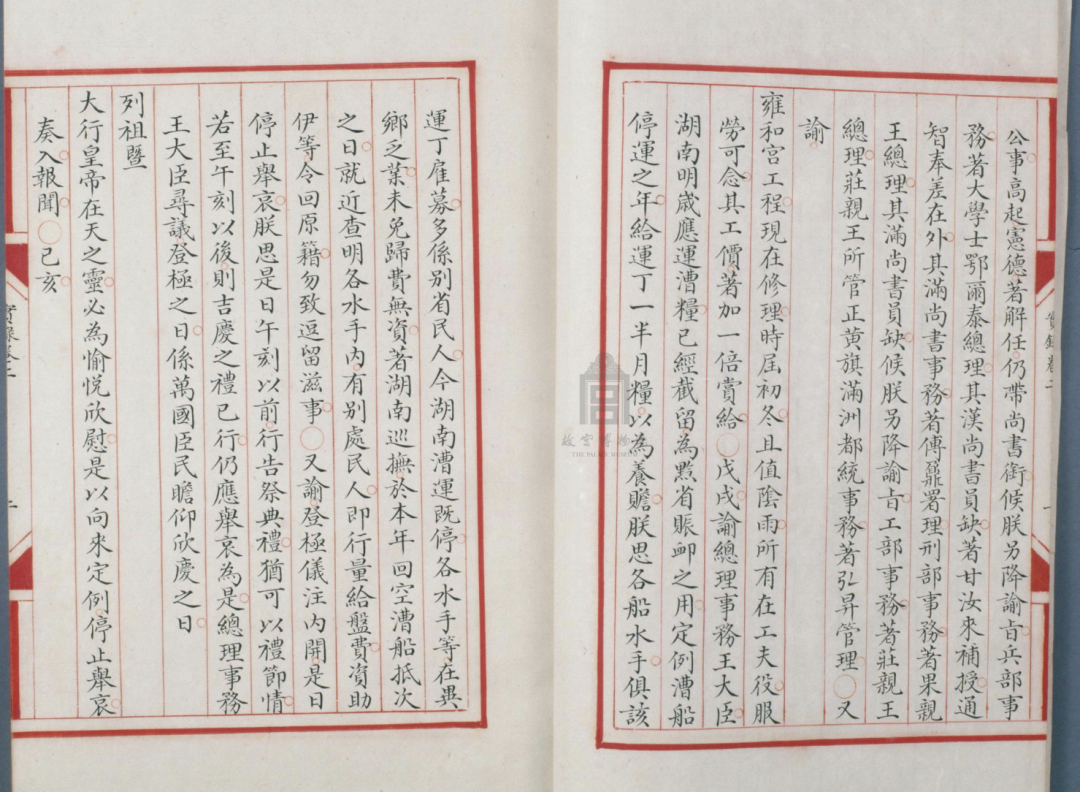 公事高起憲德著解任仍帶尚書銜候朕另降諭旨兵部事
務著大學士鄂爾泰總理其漢尚書員缺著甘汝來補授通
智奉差在外其滿尚書事務著傅鼐署理刑部事務著果親
王總理其滿尚書員缺候朕另降諭旨工部事務著莊親王
總理莊親王所管正黃旗滿洲都統事務著弘昇管理〇又
諭
雍和宮工程現在修理時屆初冬且值陰雨所有在工夫役服
勞可念其工價著加一倍賞給〇戊戌諭總理事務王大臣
湖南明歲應運漕糧已經截留為黔省賑卹之用定例漕船
停運之年給運丁一半月糧以為養贍朕思各船水手俱該
實錄卷二
運丁雇募多係別省民人今湖南漕運既停各水手等在異
鄉乏業未免歸費無資著湖南巡撫於本年回空漕船抵次
之日就近查明各水手內有別處民人即行量給盤費資助
伊等令回原籍勿致逗留滋事〇又諭登極儀注內開是日
停止舉哀朕思是日午刻以前行告祭典禮猶可以禮節情
若至午刻以後則吉慶之禮已行仍應舉哀為是總理事務
王大臣尋議登極之日係萬國臣民瞻仰欣慶之日
列祖暨
大行皇帝在天之靈必為愉悅欣慰是以向來定例停止舉哀
奏入報聞〇己亥
實錄卷二
故宮博物院
THE PALACE MUSEUM